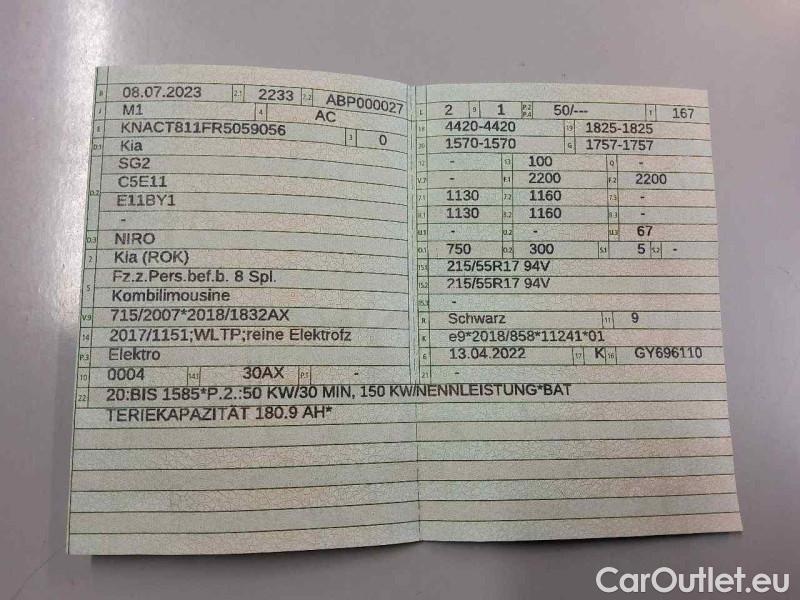 B 08.07.2023 2.1 2233 2.2 ABP000027
J M1 4 AC
E KNACT811FR5059056 3 0
D.1 Kia
SG2
D.2 C5E11
E11BY1
-
D.3 NIRO
2 Kia (ROK)
5 Fz.z.Pers.bef.b. 8 Spl.
Kombilimousine
V.9 715/2007*2018/1832AX
14 2017/1151;WLTP;reine Elektrofz
P.3 Elektro
10 0004 14.1 30AX P.1 -
L 2 9 1 P.2 P.4 50/--- T 167
18 4420-4420 19 1825-1825
20 1570-1570 G 1757-1757
12 - 13 100 Q -
V.7 - F.1 2200 F.2 2200
7.1 1130 7.2 1160 7.3 -
8.1 1130 8.2 1160 8.3 -
U.1 - U.2 - U.3 67
O.1 750 O.2 300 S.1 5 S.2 -
15.1 215/55R17 94V
15.2 215/55R17 94V
15.3 -
R Schwarz 11 9
K e9*2018/858*11241*01
6 13.04.2022 17 K 16 GY696110
21 -
22 20:BIS 1585*P.2.:50 KW/30 MIN, 150 KW/NENNLEISTUNG*BAT
TERIEKAPAZITÄT 180.9 AH*
CarOutlet.eu